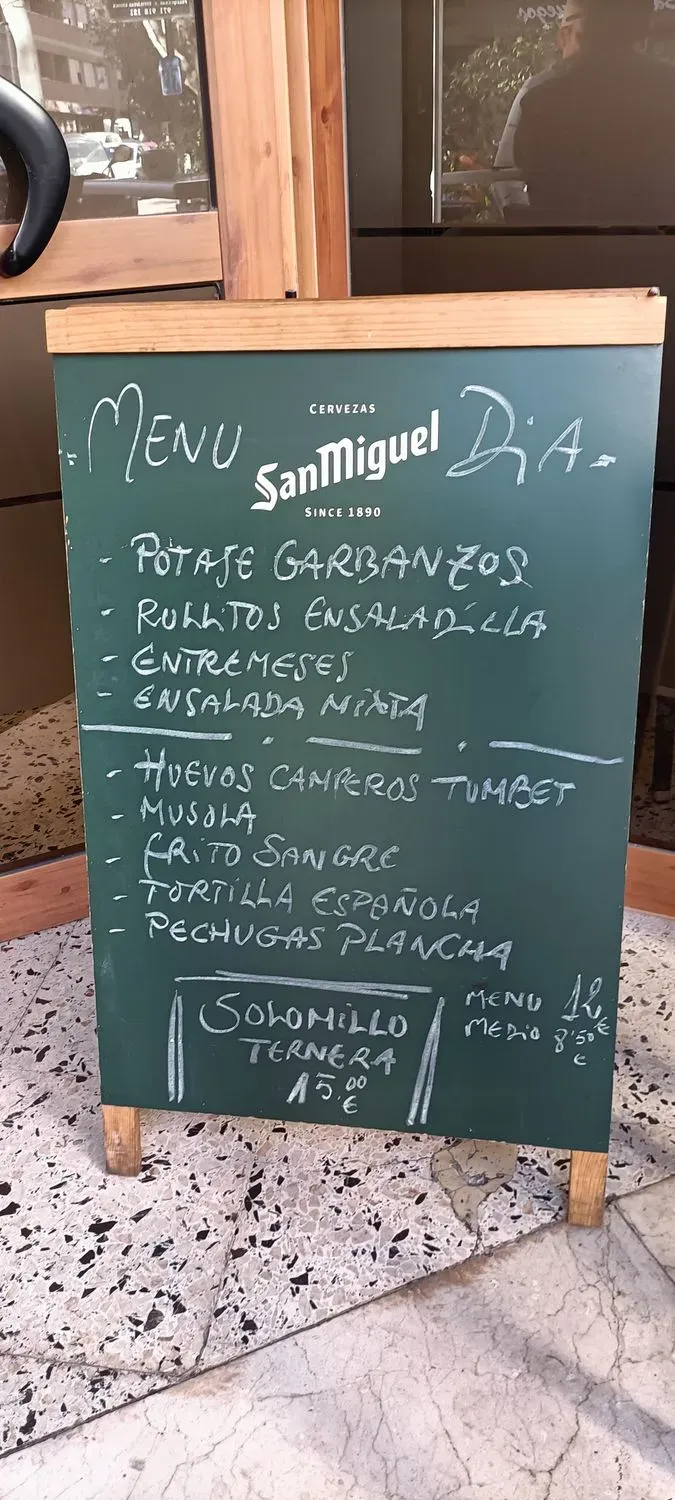 971 918 182
- MENU DiA -
CERVEZAS
SanMiguel
SINCE 1890
- POTAJE GARBANZOS
- ROLLITOS ENSALADiLLA
- ENTREMESES
- ENSALADA MiXTA
- HUEVOS CAMPEROS TUMBET
- MUSOLA
- FRiTO SANGRE
- TORTiLLA ESPAÑOLA
- PECHUGAS PLANCHA
SOLOMiLLO
TERNERA
15.00 €
MENU 12 €
MEDiO 8'50 €